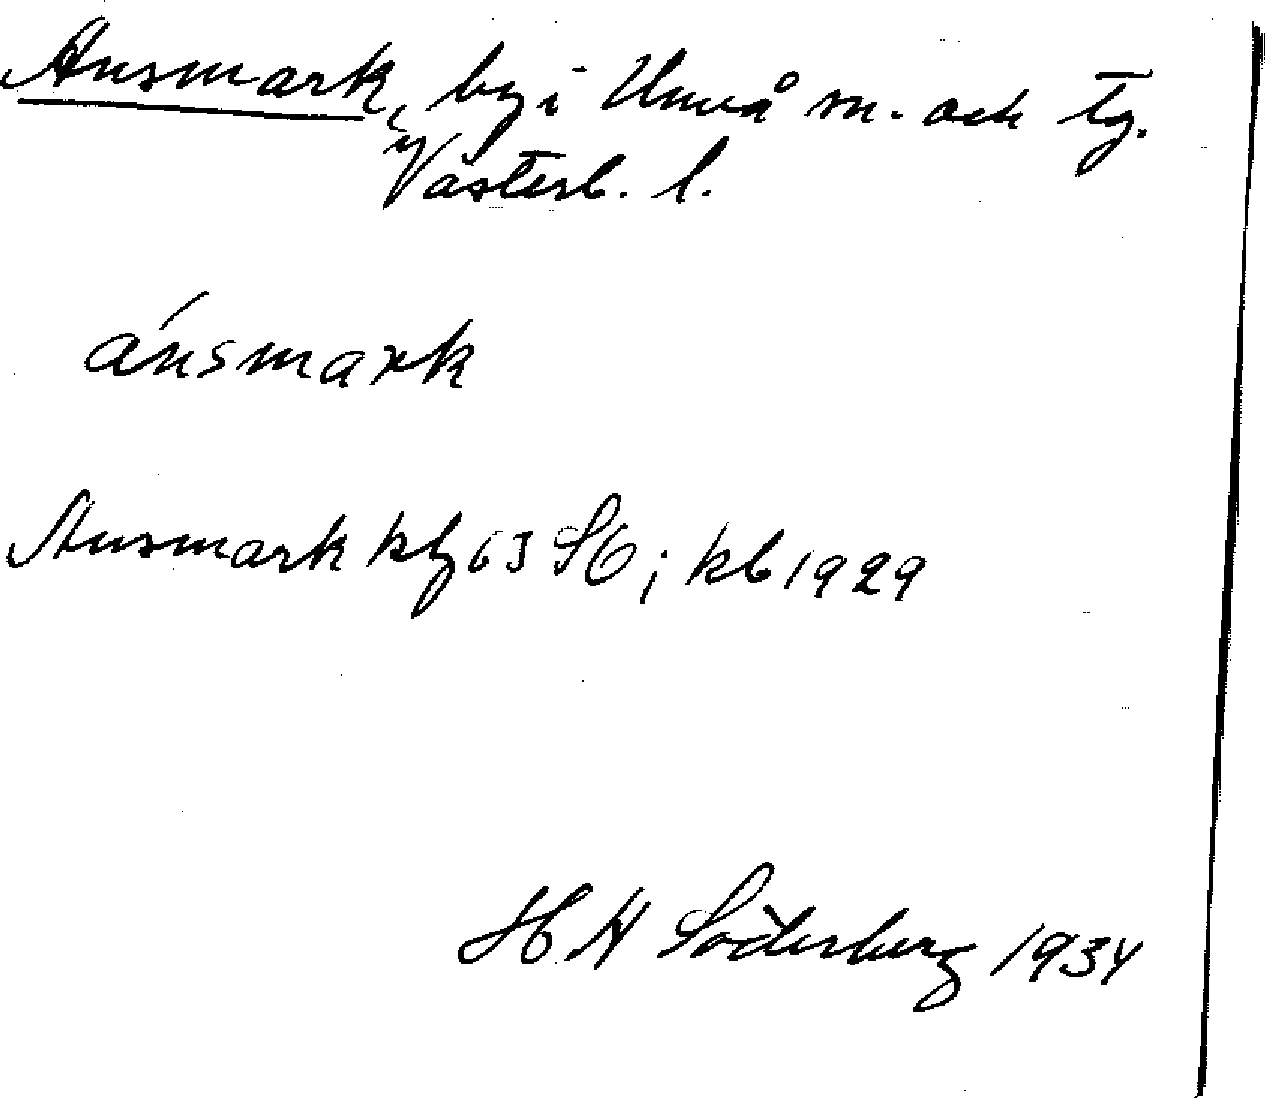 Ansmark, by i Umeå sn. och tg.
Västerb. l.
ánsmark
Ansmark kbg 63 SO; kb 1929
H N Söderberg 1934